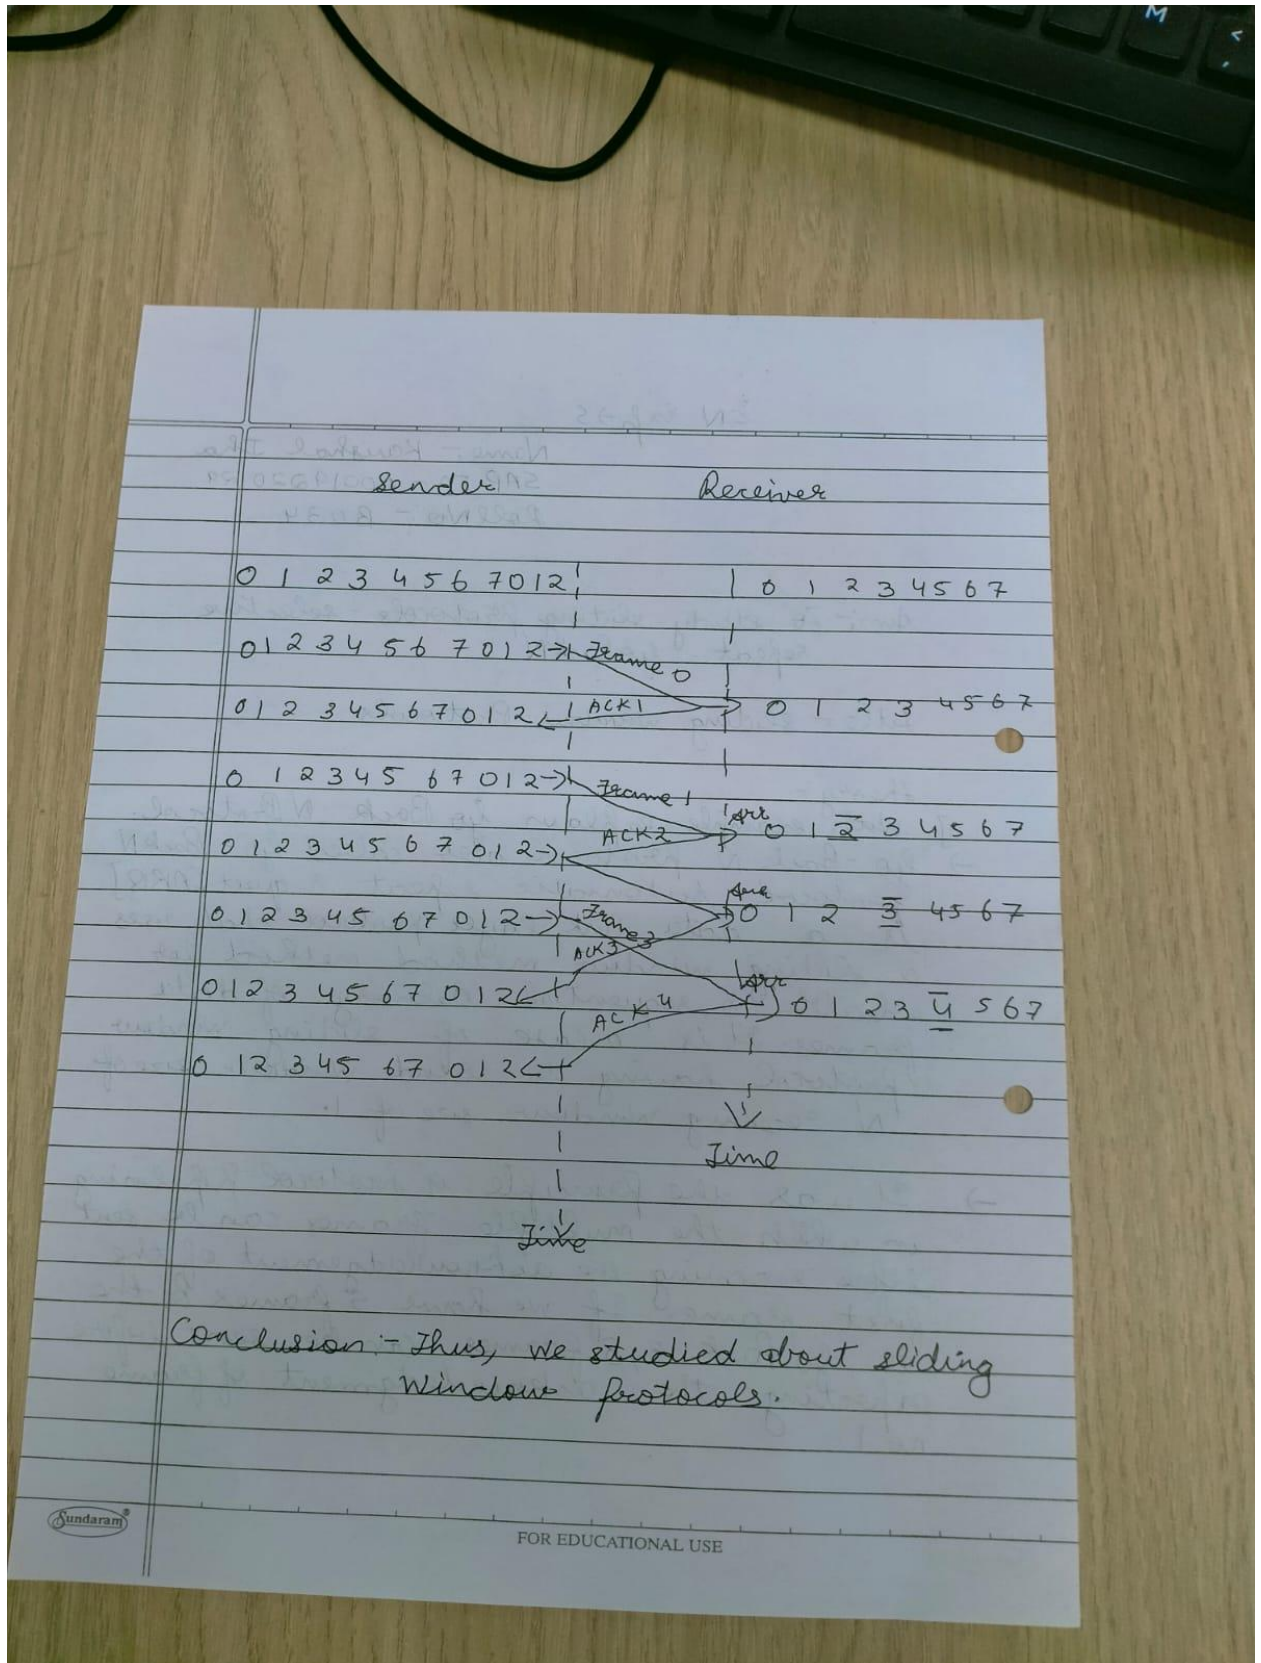 M
<
Sender Receiver
0 1 2 3 4 5 6 7 0 1 2 0 1 2 3 4 5 6 7
0 1 2 3 4 5 6 7 0 1 2 Frame 0
0 1 2 3 4 5 6 7 0 1 2 ACK1 0 1 2 3 4 5 6 7
0 1 2 3 4 5 6 7 0 1 2 Frame 1
Arr
ACK2 0 1 2 3 4 5 6 7
0 1 2 3 4 5 6 7 0 1 2
0 1 2 3 4 5 6 7 0 1 2 Frame 3 0 1 2 3 4 5 6 7
ACK3
Arr
0 1 2 3 4 5 6 7 0 1 2 ACK 4 0 1 2 3 4 5 6 7
0 1 2 3 4 5 6 7 0 1 2
Time
Time
Conclusion:- Thus, we studied about sliding
Window protocols.
Sundaram®
FOR EDUCATIONAL USE